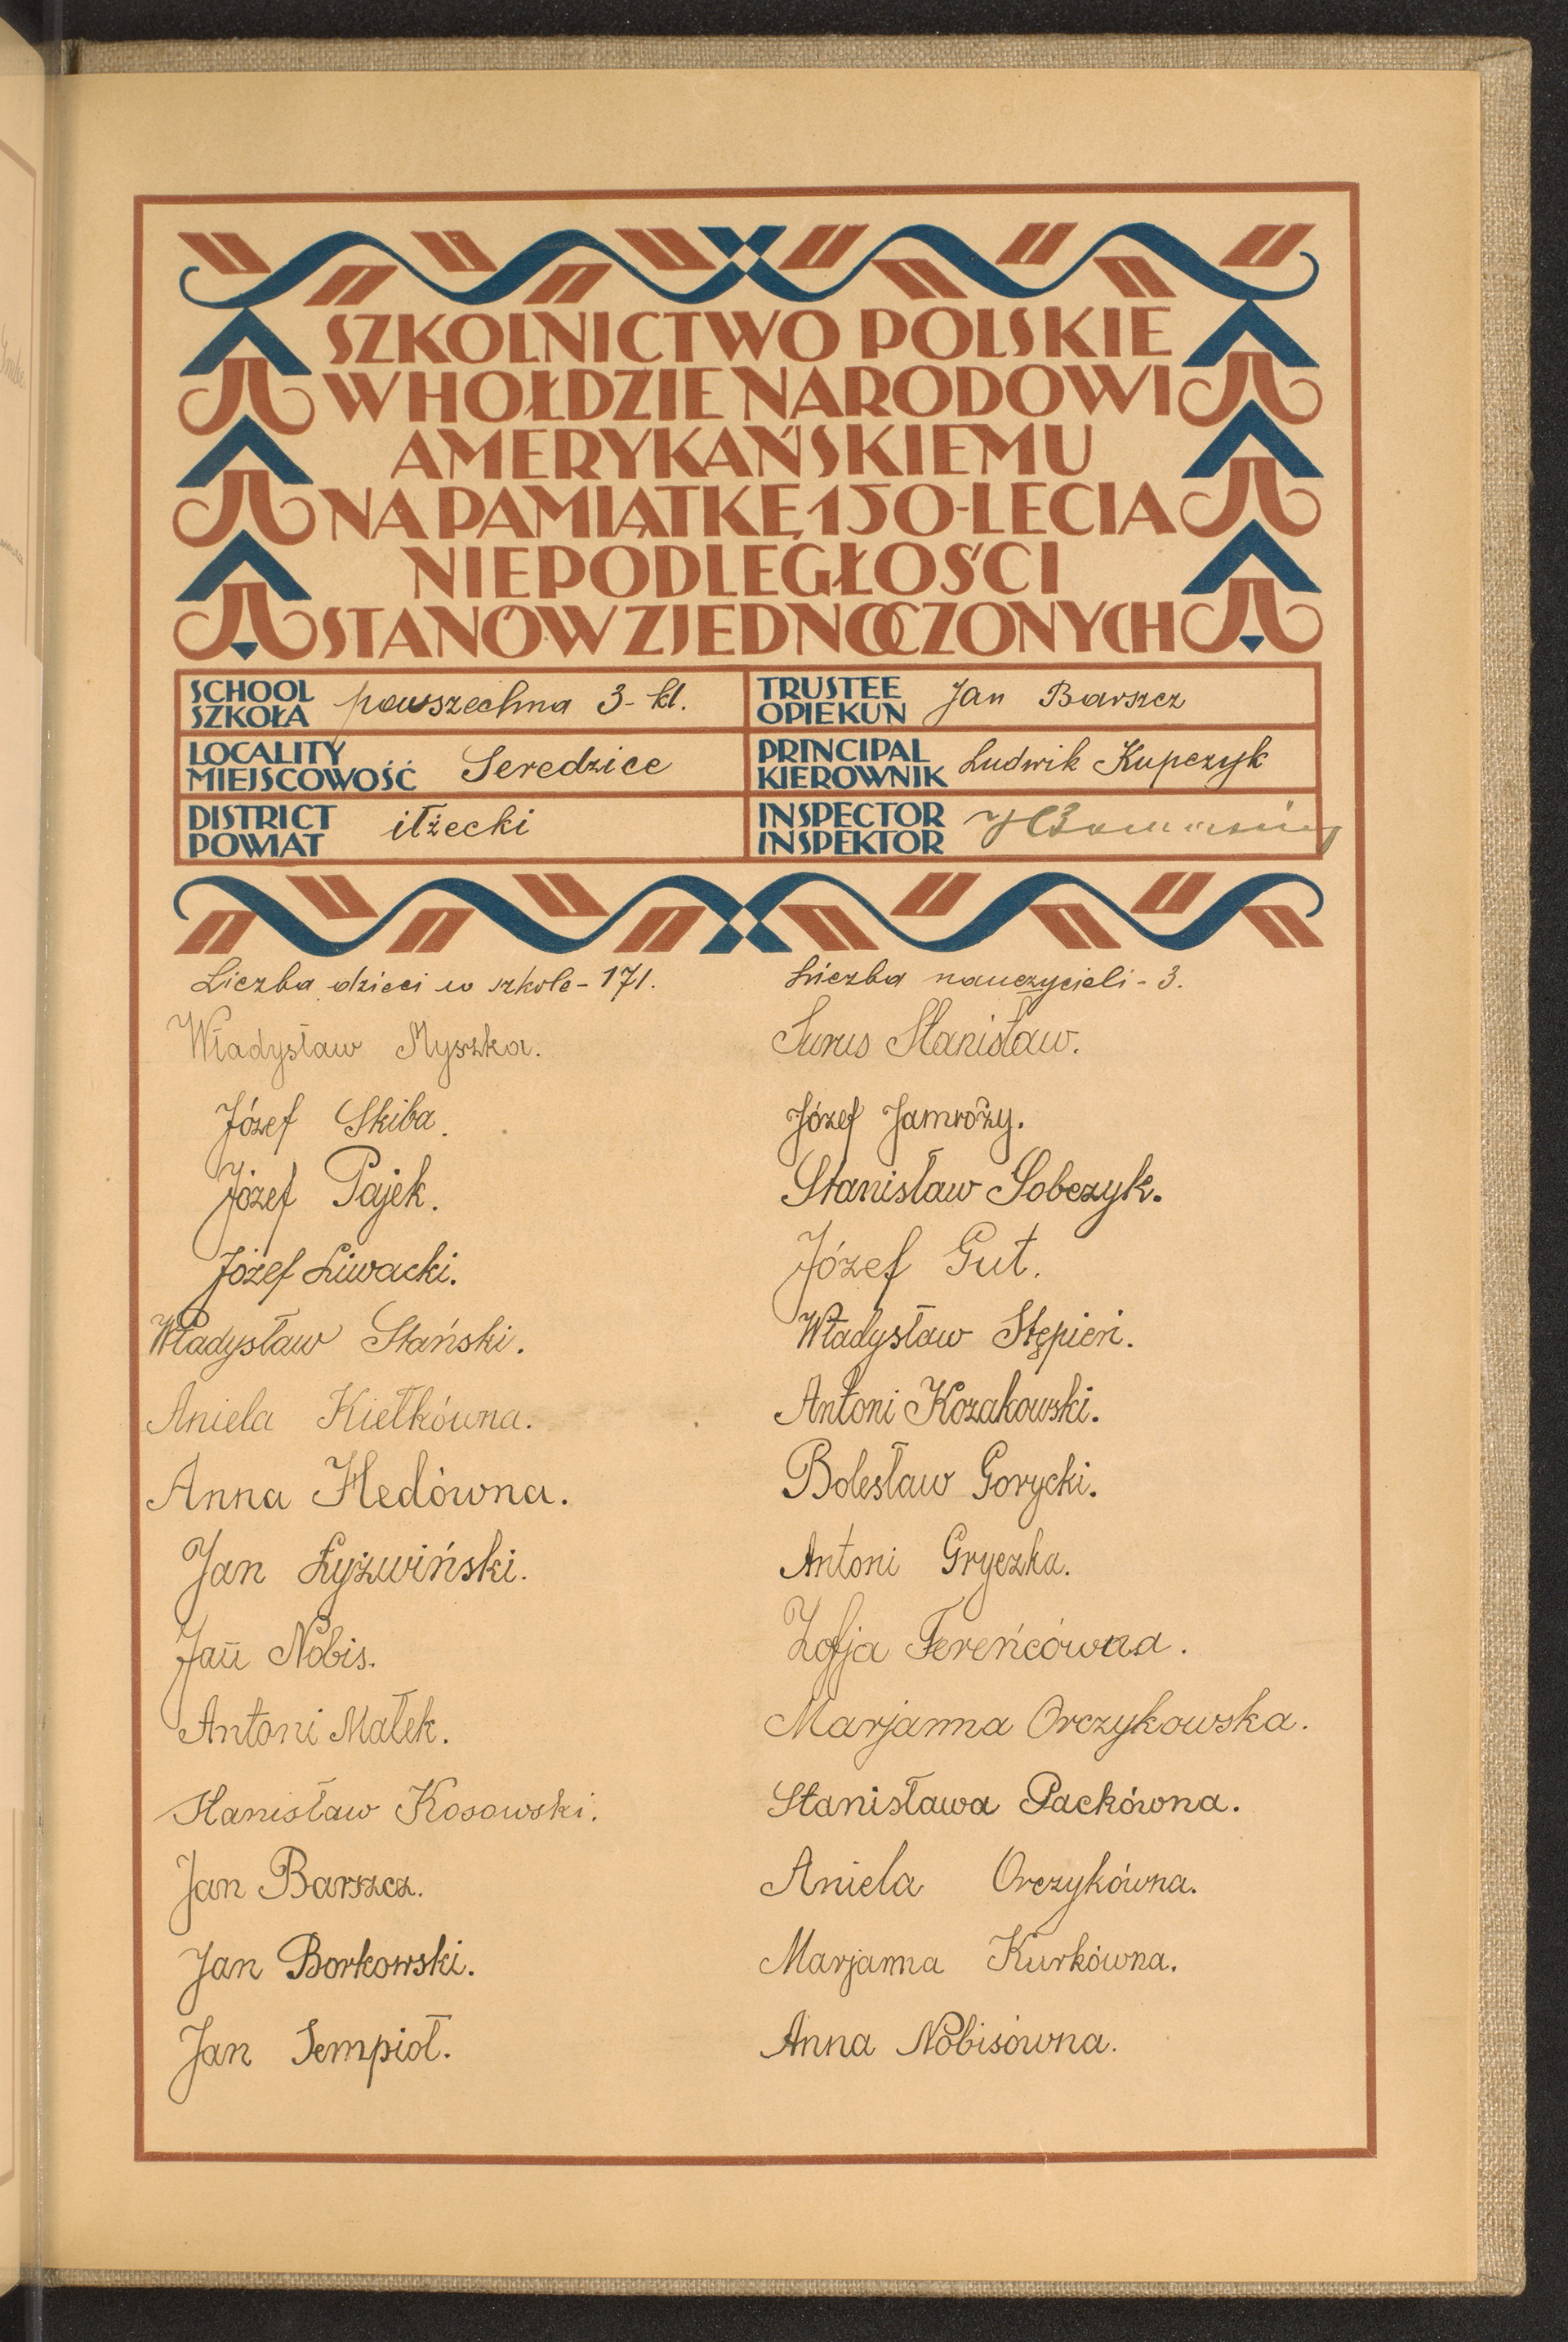 SZKOLNICTWO POLSKIE
W HOŁDZIE NARODOWI
AMERYKAŃSKIEMU
NA PAMIĄTKĘ 150-LECIA
NIEPODLEGŁOŚCI
STANÓW ZJEDNOCZONYCH
SCHOOL
SZKOŁA powszechna 3-kl.
TRUSTEE
OPIEKUN Jan Barszcz
LOCALITY
MIEJSCOWOŚĆ Seredzice
PRINCIPAL
KIEROWNIK Ludwik Kupczyk
DISTRICT
POWIAT iłżecki
INSPECTOR
INSPEKTOR
Liczba dzieci w szkole - 171.
Władysław Myszka.
Józef Skiba.
Józef Pajek.
Józef Liwacki.
Władysław Stański.
Aniela Kiełkówna.
Anna Hedówna.
Jan Łyżwiński.
Jan Nobis.
Antoni Małek.
Stanisław Kosowski.
Jan Barszcz.
Jan Borkowski.
Jan Sempioł.
Liczba nauczycieli - 3.
Surus Stanisław.
Józef Jamroży.
Stanisław Sobczyk.
Józef Gut.
Władysław Stępień.
Antoni Kozakowski.
Bolesław Gorycki.
Antoni Gryczka.
Zofja Fereńcówna.
Marjanna Orczykowska.
Stanisława Packówna.
Aniela Orczykówna.
Marjanna Kurkówna.
Anna Nobisówna.